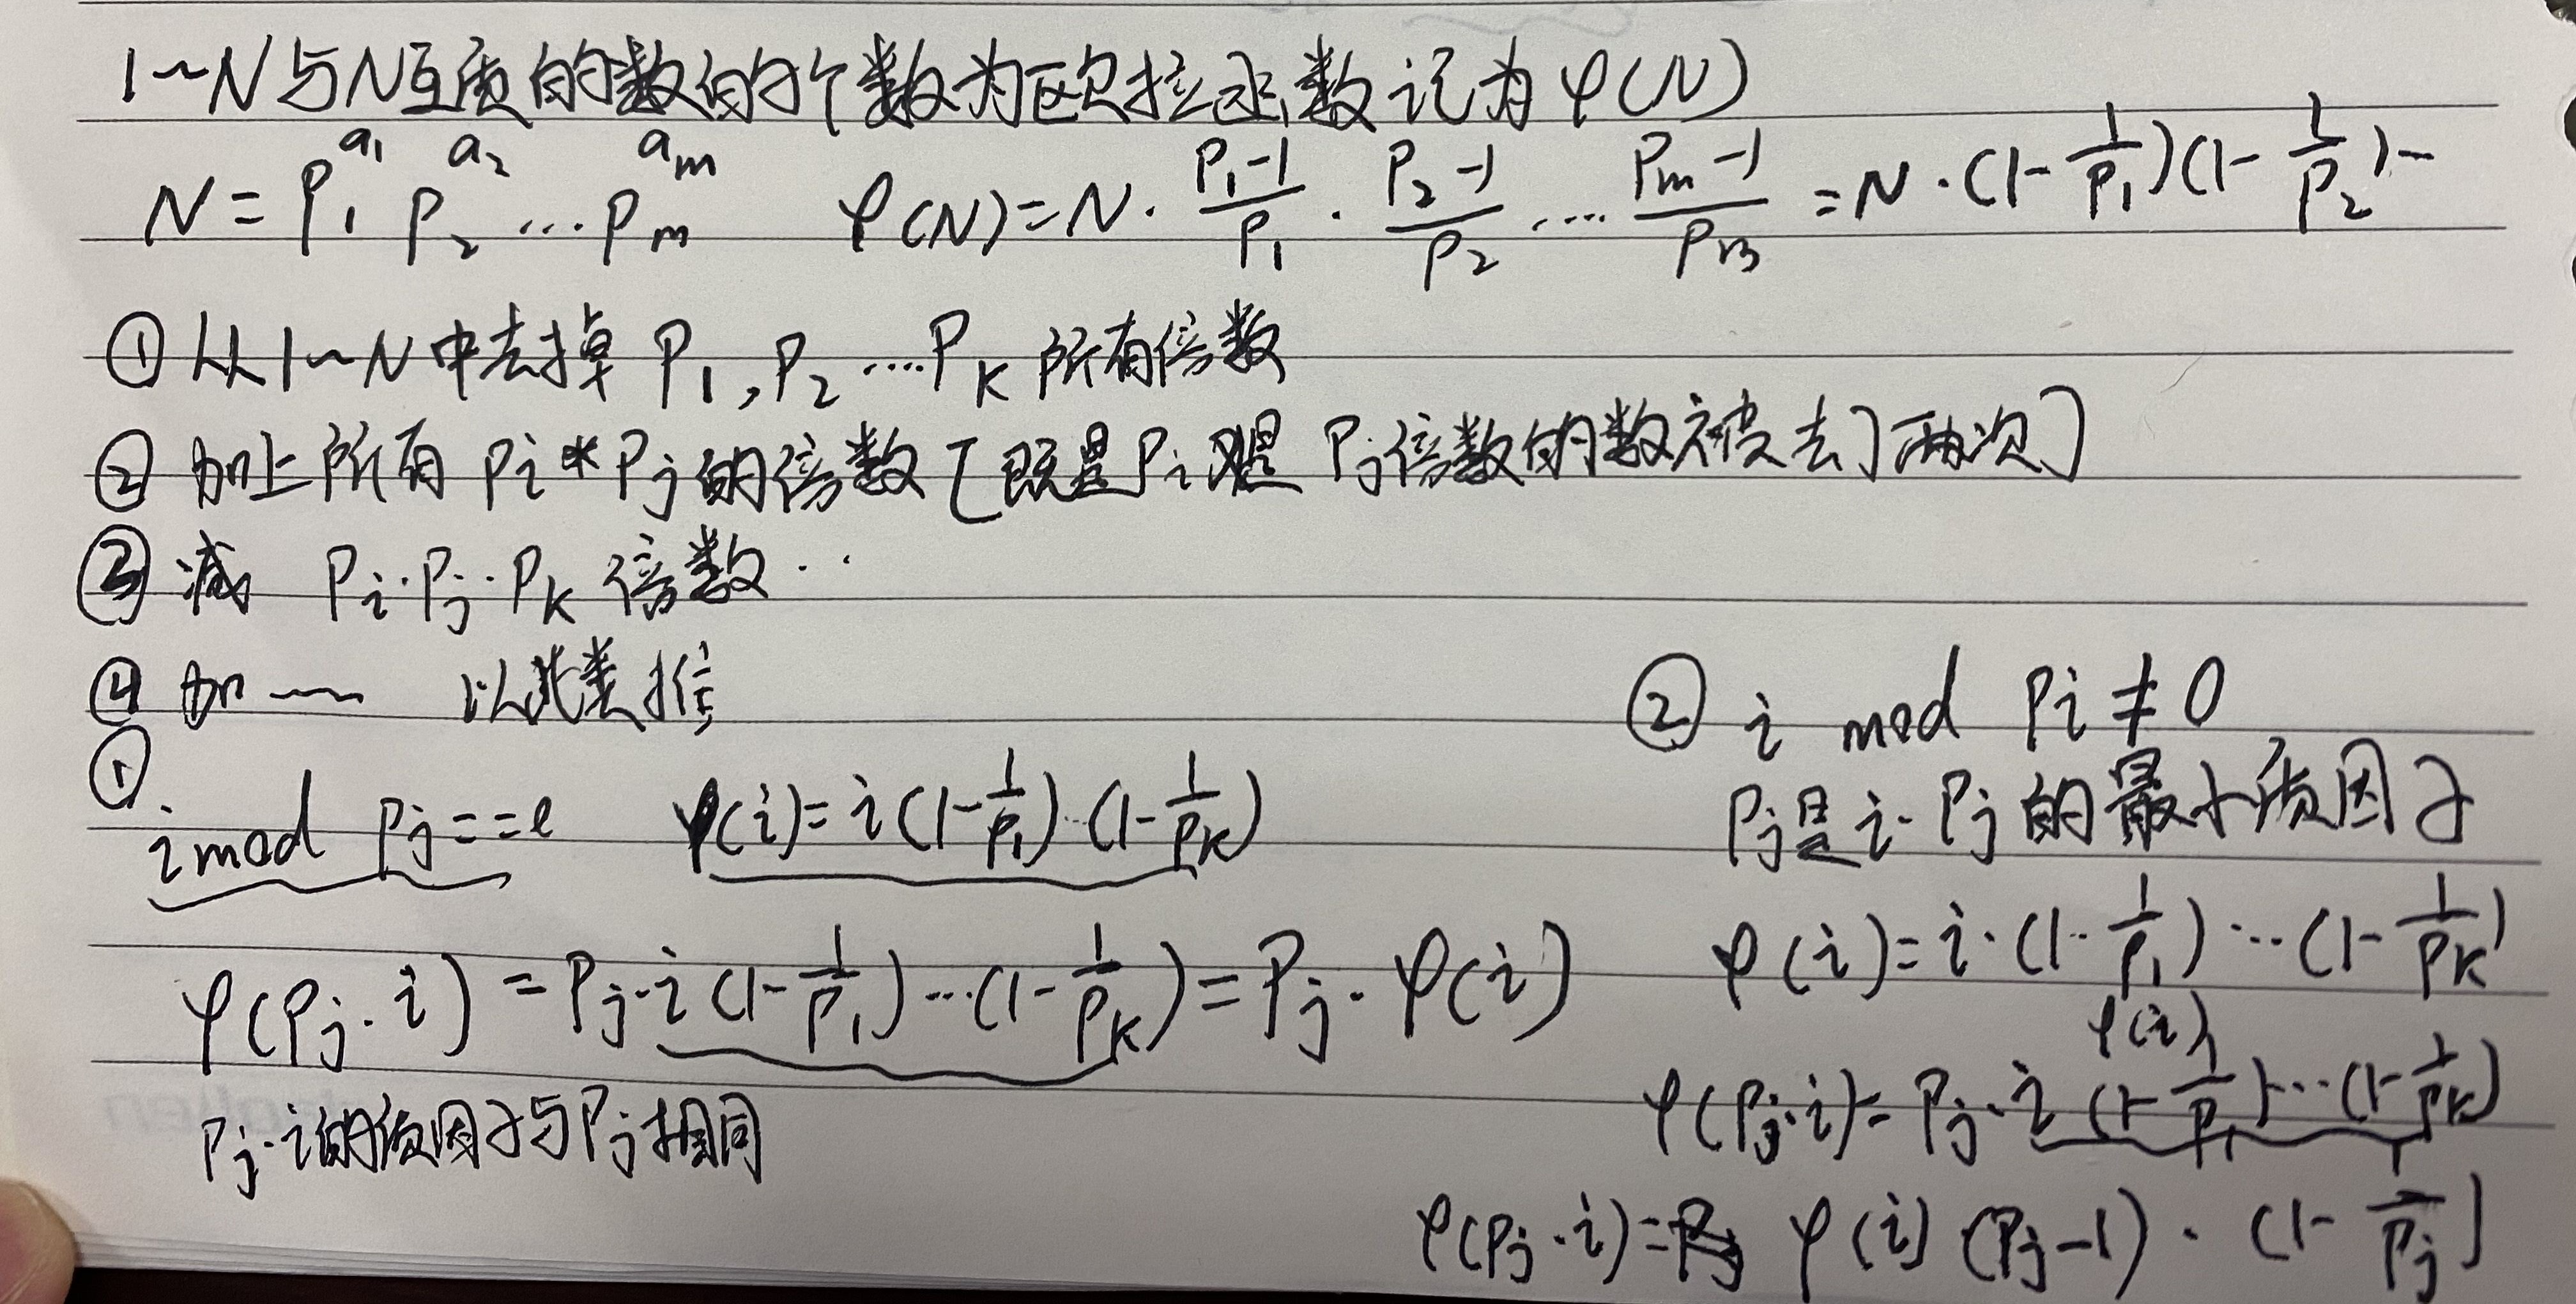 1~N与N互质的数的个数为欧拉函数记为φ(N)
N = P₁^a₁ P₂^a₂ ... Pₘ^aₘ φ(N) = N · (P₁-1)/P₁ · (P₂-1)/P₂ ..... (Pₘ-1)/Pₘ = N · (1-1/P₁)(1-1/P₂)...
① 从1~N中去掉 P₁, P₂ .... Pₖ 所有倍数
② 加上所有 Pi * Pj 的倍数 [既是Pi又是 Pj倍数的数被去了两次]
③ 减 Pi·Pj·Pk 倍数 ··
④ 加 —— 以此类推
① i mod Pj == 0 φ(i) = i(1-1/P₁)··(1-1/Pₖ)
φ(Pj·i) = Pj·i(1-1/P₁)···(1-1/Pₖ) = Pj·φ(i)
Pj·i的质因子与Pj相同
② i mod Pi ≠ 0
Pj是i·Pj的最小质因子
φ(i) = i·(1-1/P₁)···(1-1/Pₖ)
φ(i)
φ(Pj·i) = Pj·i (1-1/P₁)···(1-1/Pₖ)
φ(Pj·i) = φ(i) (Pj-1) · (1-1/Pj)